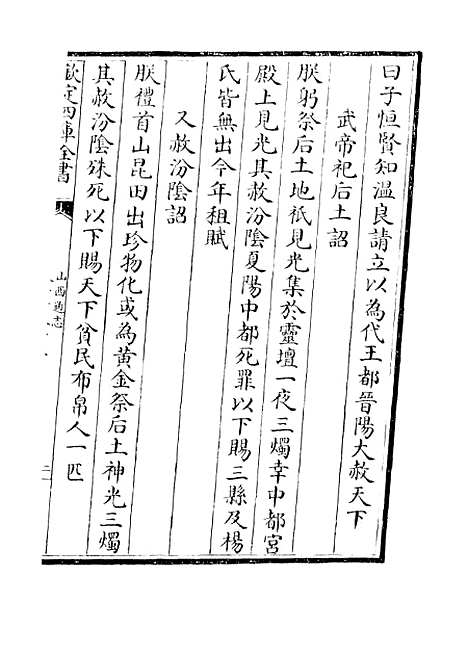 曰子恒賢知溫良請立以為代王都晉陽大赦天下
武帝祀后土詔
朕躬祭后土地祇見光集於靈壇一夜三燭幸中都宮
殿上見光其赦汾陰夏陽中都死罪以下賜三縣及楊
氏皆無出今年租賦
又赦汾陰詔
朕禮首山昆田出珍物化或為黃金祭后土神光三燭
其赦汾陰殊死以下賜天下貧民布帛人一匹
欽定四庫全書
山西通志
二